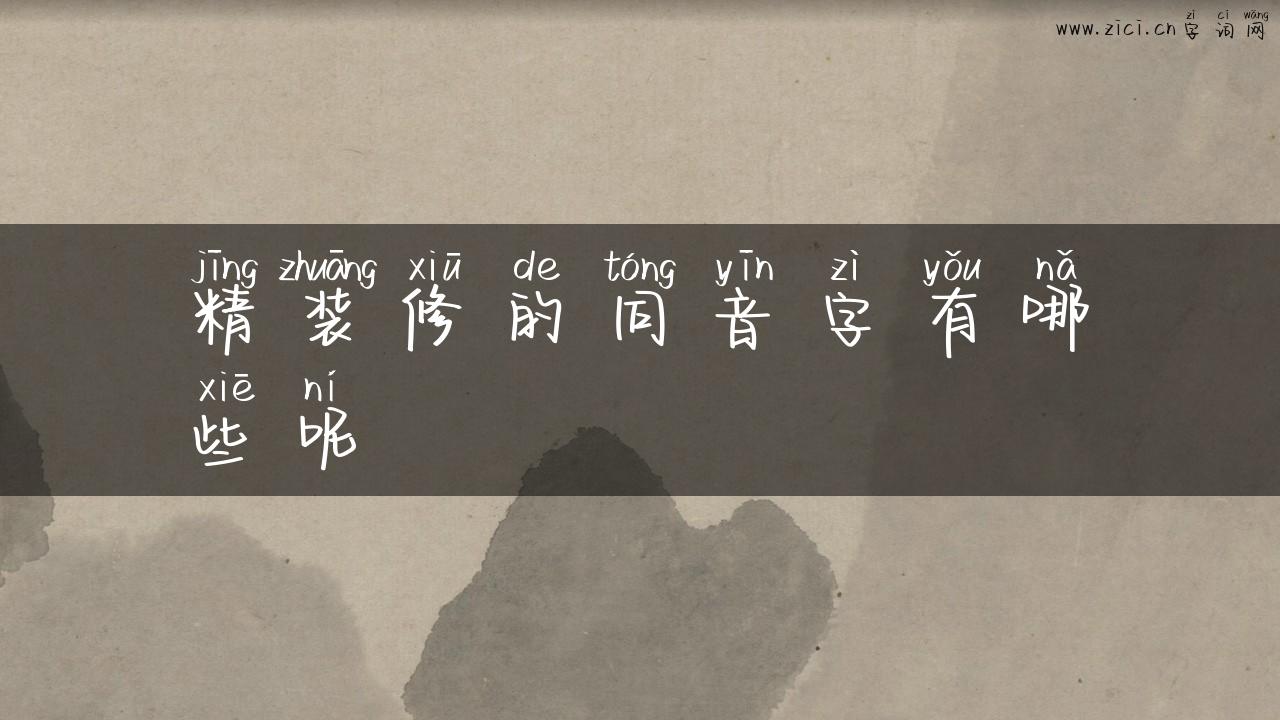 zì cí wǎng
www.zici.cn字词网
jīng zhuāng xiū de tóng yīn zì yǒu nǎ
精装修的同音字有哪
xiē ní
些呢